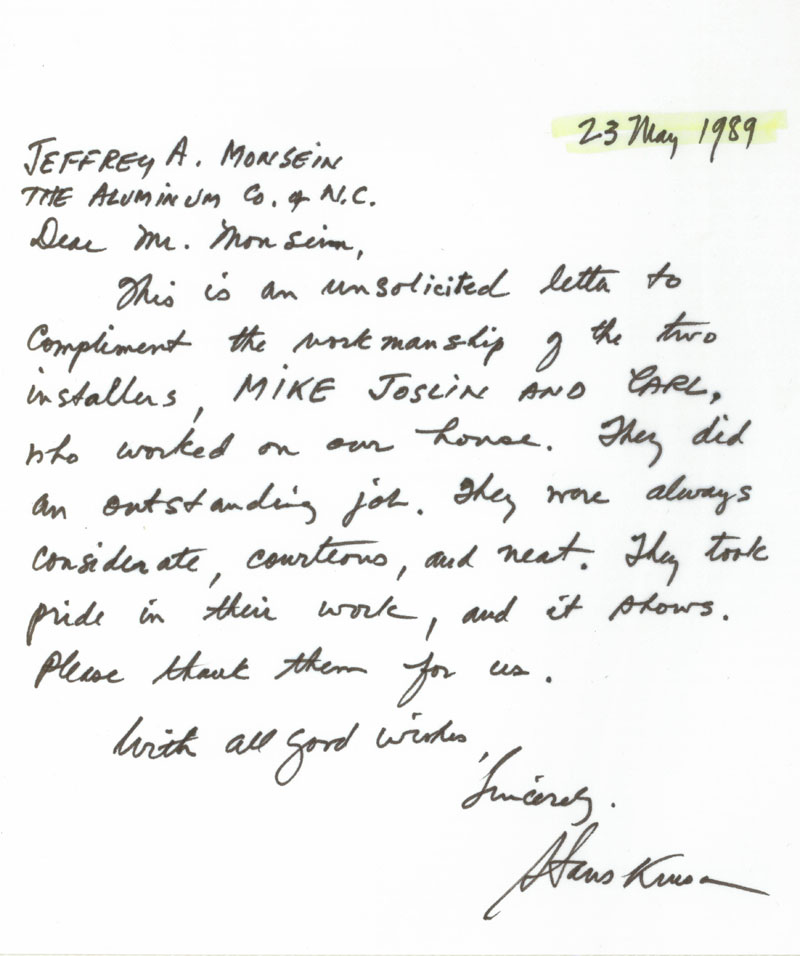 23 May 1989
JEFFREY A. MONSEIN
THE ALUMINUM Co. of N.C.
Dear Mr. Monsein,
This is an unsolicited letter to
compliment the workmanship of the two
installers, MIKE JOSLIN AND CARL,
who worked on our house. They did
an outstanding job. They were always
considerate, courteous, and neat. They took
pride in their work, and it shows.
Please thank them for us.
With all good wishes,
Sincerely,
Hans